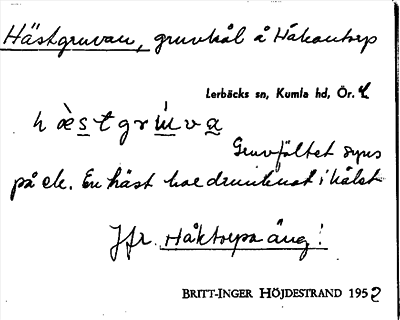 Hästgruvan, gruvhål å Håkantorp
Lerbäcks sn, Kumla hd, Ör. l.
hæ̀stgrúva
Gruvfältet syns
på ek. En häst har drunknat i hålet
Jfr Håktorpa äng!
BRITT-INGER HÖJDESTRAND 1952